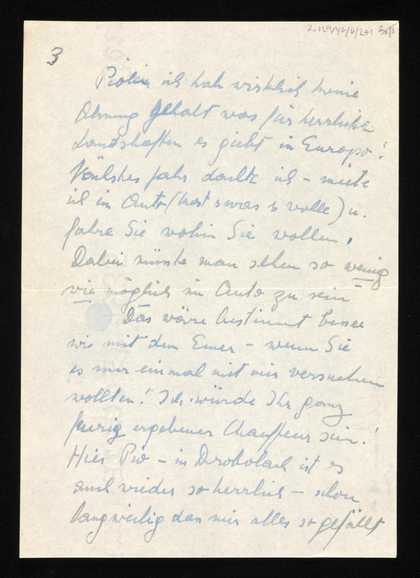 3
ich hab wirklich keine
Ahnung gehabt was für herrliche
Landschaften es giebt in Europa!
Nächstes Jahr dachte ich – miete
ich in Auto (kost es was es wolle) u.
fahre Sie wohin Sie wollen,
Dabei müsste man sehen so wenig
wie möglich im Auto zu sein
Das wäre bestimmt besser
wie mit dem – wenn Sie
es mir einmal mit mir versuchen
wollten! Ich würde Ihr ganz
ergebener Chauffeur sein!
Hier – in Drobolach ist es
auch wieder so herrlich – schon
langweilig das mir alles so gefällt